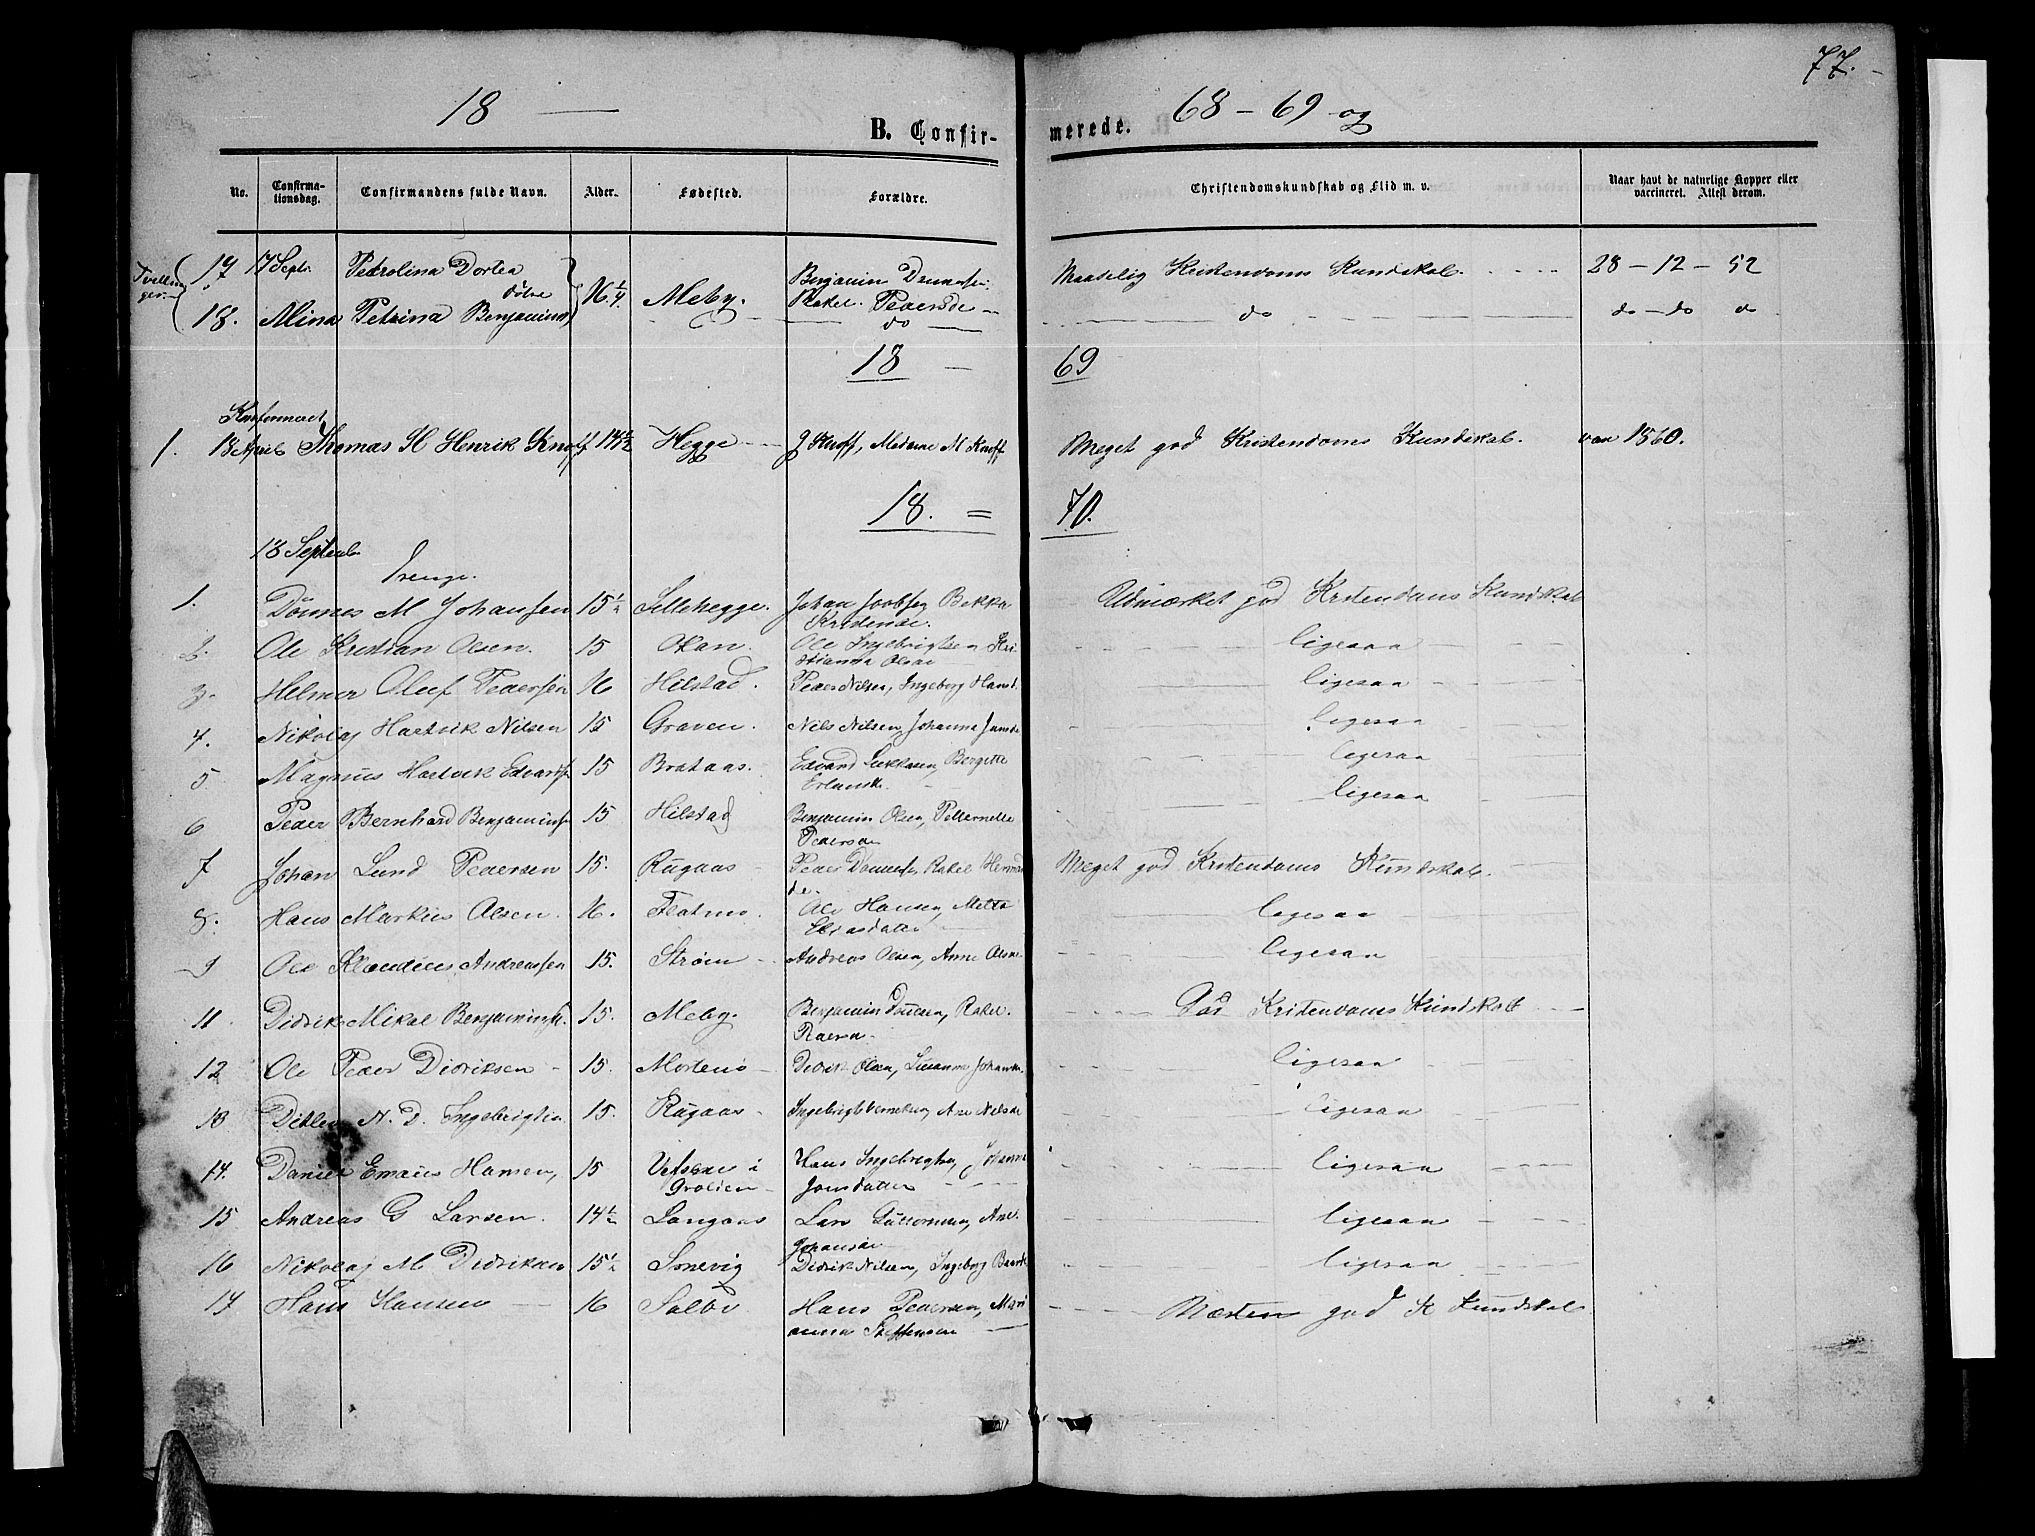 77.
18 — 68 - 69 og
B. Confir- merede.
No. Confirma-tionsdag. Confirmandens fulde Navn. Alder. Fødested. Forældre. Christendomskundskab og Flid m. v. Naar havt de naturlige Kopper eller vaccineret. Attest derom.
17 17 Septr. Petrolina Dortea Benjamin Maadelig Kristendoms Kundskab. 28 - 12 - 52
18. Alina Petrina Benjamins 16 1/4. Meby. Rakel Pedersd
do do do - do do
18 — 69
Konfirmeret
1. 18 April Thomas H Henrik Knoff 14 1/2 Hegge J Knoff, Madame M Knoff Meget god Kristendoms Kundskab. vac 1860.
18. = 70.
18 Septemb
Drenge.
1. Dønnes M Johansen 15 1/2 Lillehegge. Johan Bekka Udmærket god Kristendoms Kundskab
2. Ole Kristian Olsen. 15 Okan. Ole Ingebrigtsen Kri
stianna Olsdt ligesaa
3. Helmer Oluf Pedersen 16 Hilstad. Peder Nilsen, Ingeborg Hansd. ligesaa
4. Nikolaj Hartvik Nilsen 15 Graven. Nils Nilsen, Johanna ligesaa
5. Magnus Hartvik Edvards 15 Brataas. Edvard Bergitte ligesaa
6 Peder Bernhard Benjamins 15 Hilstad Benjamin Olsen, ligesaa
7 Johan Lund Pedersen 15. Rugaas Peder Rakel Meget god Kristendoms Kundskab.
8. Hans Markus Olsen. 16. Flatmo. Ole Hansen, Meta
Eliasdatter ligesaa
9 Ole Klaudius Andreassen 15. Strøm Andreas Olsen, Anne Olsdt ligesaa
11 Didrik Mikal Benjamins. 15. Meby. Benjamin Rakel God Kristendoms Kundskab
12 Ole Peder Didriksen 15. Mortens Didrik Olsen, Susanna ligesaa
13 Ditlev N. D. Ingebrigtsen 15. Rugaas Ane Nilsdt ligesaa
14. Daniel Hansen, 15 i Hans Ingebrigtsen, Johanna
Jonsdatter ligesaa
15 Andreas G Larsen. 14 1/2 Langaas Lars Ane
Johansdt ligesaa
16 Nikolaj M Didriksen 15 1/2 Didrik Nilsen, Ingeborg ligesaa
17 Hans Hansen 16 Hans Pedersen, Mari
anna Steffensen Næsten god K Kundskab